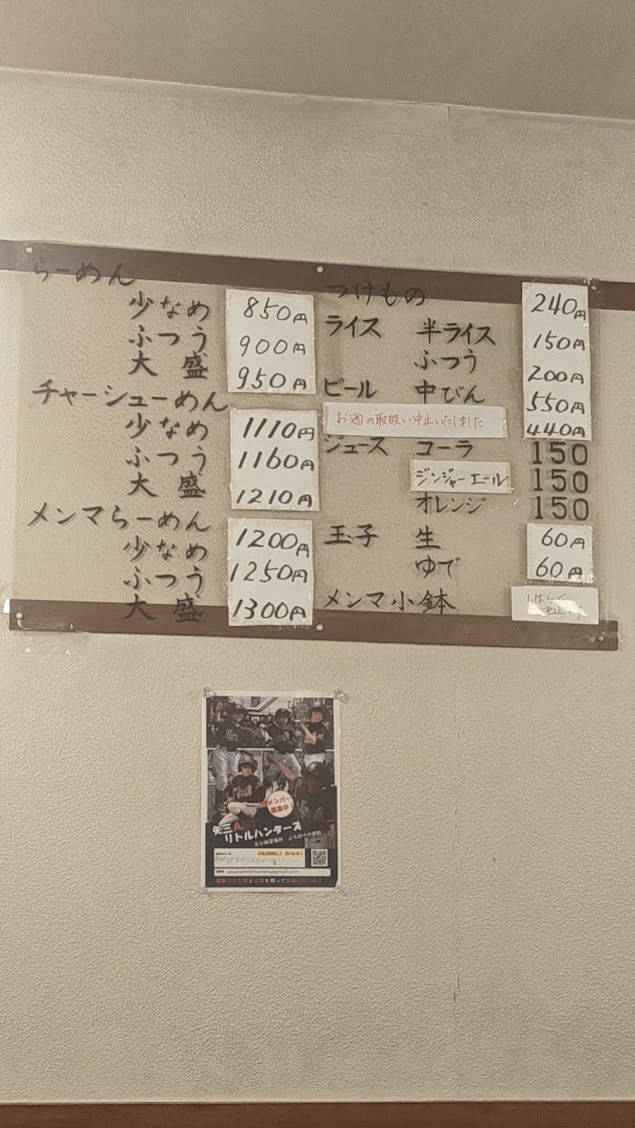 らーめん
少なめ 850円
ふつう 900円
大盛 950円
チャーシューめん
少なめ 1110円
ふつう 1160円
大盛 1210円
メンマらーめん
少なめ 1200円
ふつう 1250円
大盛 1300円
つけもの 240円
ライス 半ライス 150円
ふつう 200円
ビール 中びん 550円
お酒の取扱い中止いたしました 440円
ジュース コーラ 150
ジンジャーエール 150
オレンジ 150
玉子 生 60円
ゆで 60円
メンマ小鉢 しばらく
メンバー
募集中
矢三
リトルハンターズ